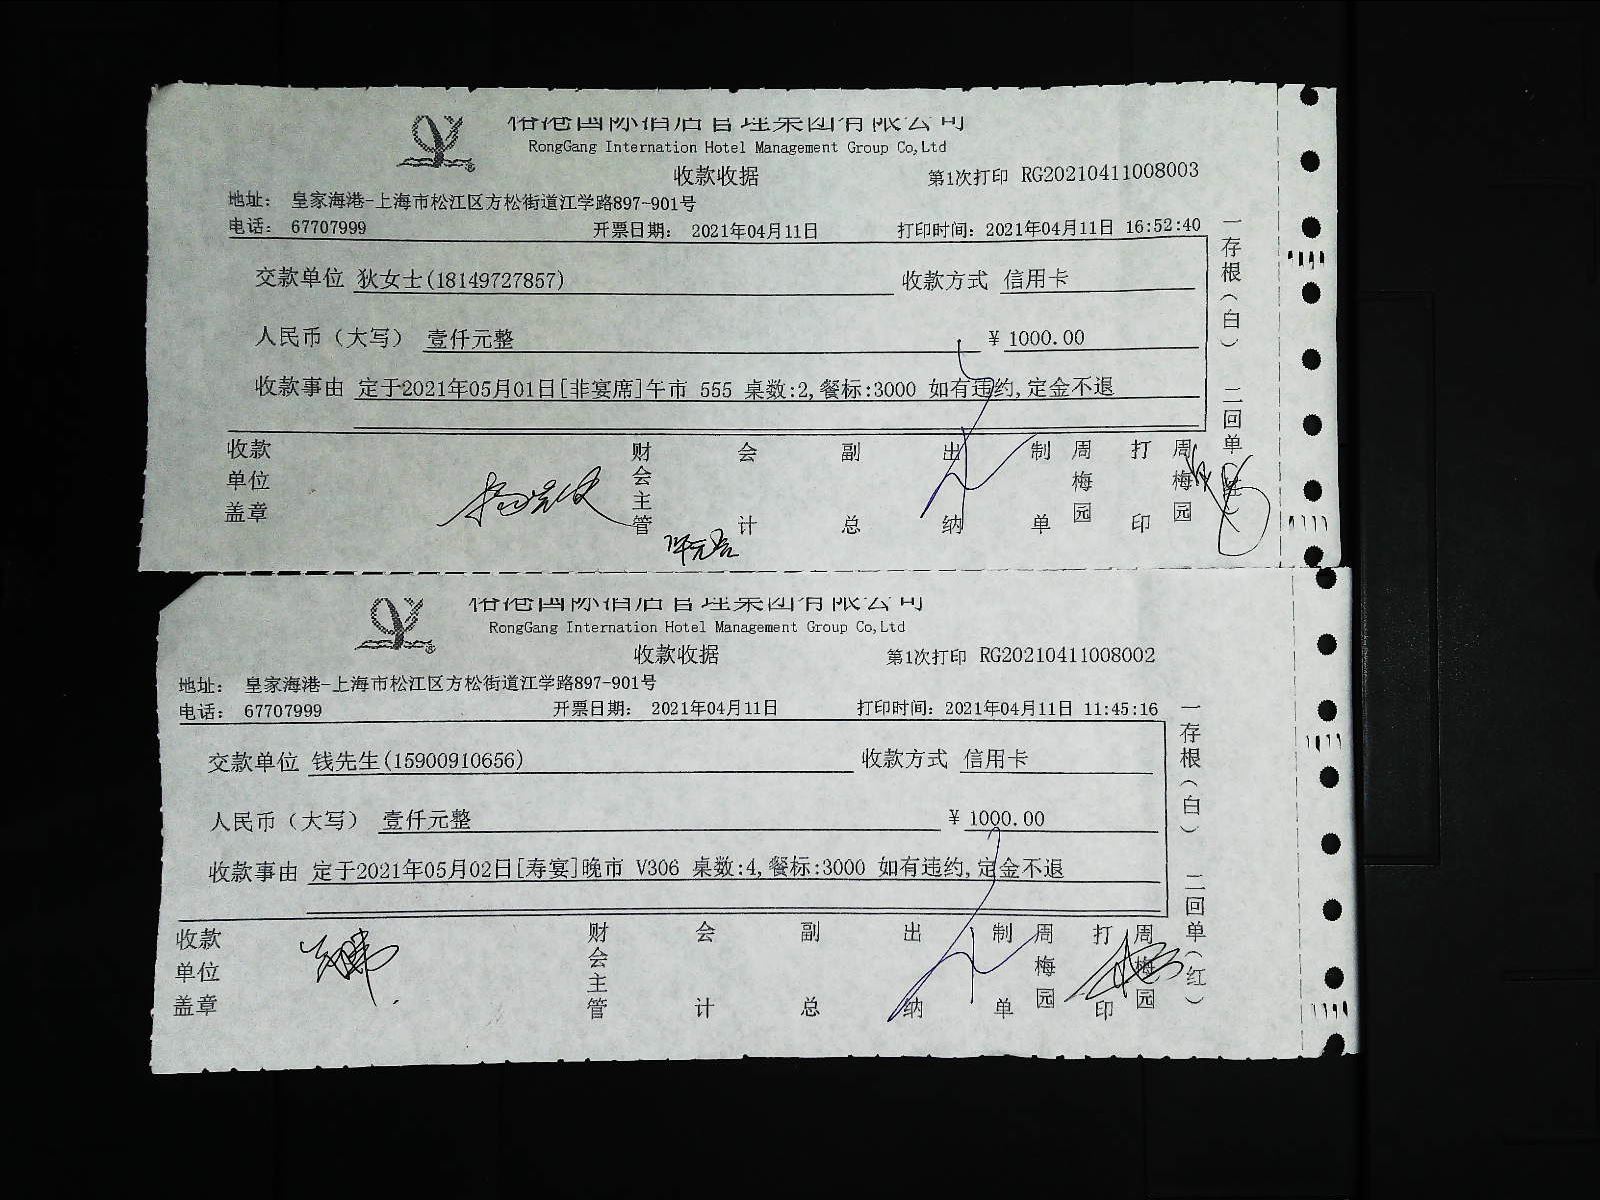 裕港国际酒店管理集团有限公司
RongGang Internation Hotel Management Group Co,Ltd
收款收据
第1次打印 RG20210411008003
地址： 皇家海港-上海市松江区方松街道江学路897-901号
电话： 67707999 开票日期： 2021年04月11日 打印时间：2021年04月11日 16:52:40
交款单位 狄女士(18149727857) 收款方式 信用卡
人民币（大写） 壹仟元整 ¥ 1000.00
收款事由 定于2021年05月01日[非宴席]午市 555 桌数:2,餐标:3000 如有违约,定金不退
收款单位盖章 财会主管 会计 副总 出纳 制单 周梅园 打印 周梅园
一存根（白） 二回单（红）
裕港国际酒店管理集团有限公司
RongGang Internation Hotel Management Group Co,Ltd
收款收据
第1次打印 RG20210411008002
地址： 皇家海港-上海市松江区方松街道江学路897-901号
电话： 67707999 开票日期： 2021年04月11日 打印时间：2021年04月11日 11:45:16
交款单位 钱先生(15900910656) 收款方式 信用卡
人民币（大写） 壹仟元整 ¥ 1000.00
收款事由 定于2021年05月02日[寿宴]晚市 V306 桌数:4,餐标:3000 如有违约,定金不退
收款单位盖章 财会主管 会计 副总 出纳 制单 周梅园 打印 周梅园
一存根（白） 二回单（红）